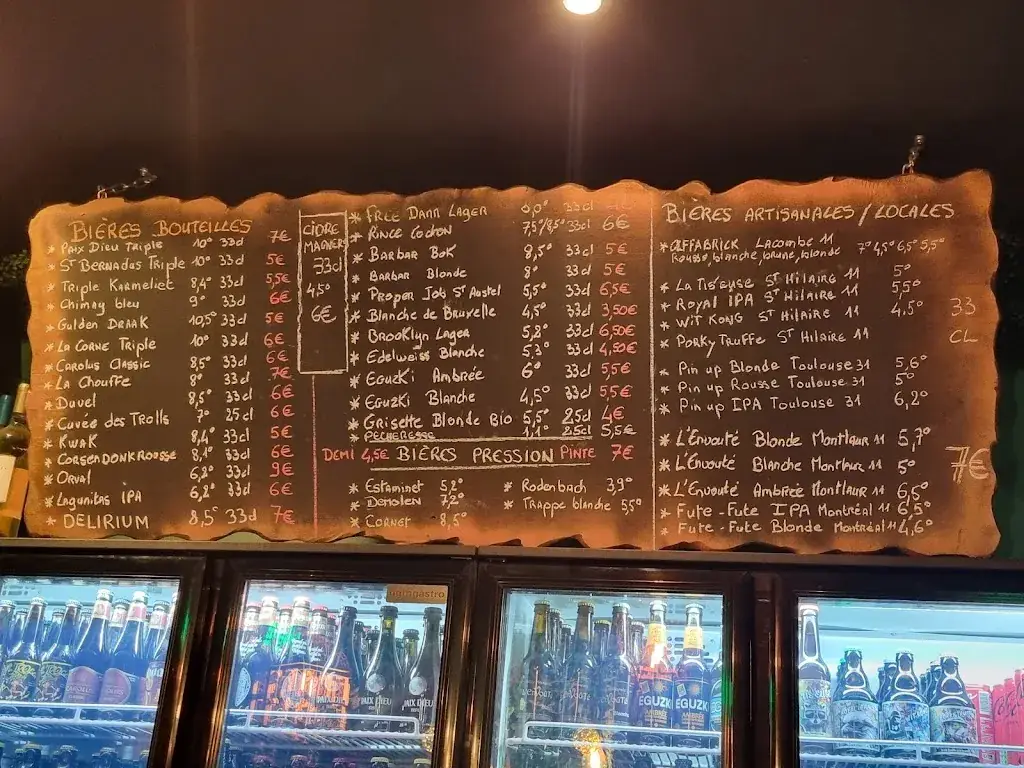 BIÈRES BOUTEILLES
* PAIX DIEU TRIPLE 10° 33cl 7€
* ST BERNADUS TRIPLE 10° 33cl 5€
* TRIPLE KARMELIET 8,4° 33cl 5,5€
* CHIMAY BLEU 9° 33cl 6€
* GULDEN DRAAK 10,5° 33cl 5€
* LA CORNE TRIPLE 10° 33cl 6€
* CAROLUS CLASSIC 8,5° 33cl 6€
* LA CHOUFFE 8° 33cl 7€
* DUVEL 8,5° 33cl 6€
* CUVÉE DES TROLLS 7° 25cl 6€
* KWAK 8,4° 33cl 5€
* CORSENDONK ROUSSE 8,1° 33cl 6€
* ORVAL 6,2° 33cl 9€
* LAGUNITAS IPA 6,2° 33cl 6€
* DELIRIUM 8,5° 33cl 7€
CIDRE
MAGNERS
33cl
4,5°
6€
* FREE DAMM LAGER 0,0° 33cl
* RINCE COCHON 7,5°/8,5° 33cl 6€
* BARBAR BOK 8,5° 33cl 5€
* BARBAR BLONDE 8° 33cl 5€
* PROPER JOB ST AUSTEL 5,5° 33cl 6,5€
* BLANCHE DE BRUXELLE 4,5° 33cl 3,50€
* BROOKLYN LAGER 5,2° 33cl 6,50€
* EDELWEISS BLANCHE 5,3° 33cl 4,50€
* EGUZKI AMBRÉE 6° 33cl 5,5€
* EGUZKI BLANCHE 4,5° 33cl 5,5€
* GRISETTE BLONDE BIO 5,5° 25cl 4€
* PECHERESSE 1,1° 25cl 5,5€
DEMI 4,5€ BIÈRES PRESSION PINTE 7€
* ESTAMINET 5,2° * RODENBACH 3,9°
* DEMOLEN 7,2° * TRAPPE BLANCHE 5,5°
* CORNET 8,5°
BIERES ARTISANALES / LOCALES
* ALFFABRICK LACOMBE 11 7° 4,5° 6,5° 5,5°
ROUSSE, BLANCHE, BRUNE, BLONDE
* LA TIS'EYSE ST HILAIRE 11 5°
* ROYAL IPA ST HILAIRE 11 5,5°
* WIT KONG ST HILAIRE 11 4,5°
* PORKY TRUFFE ST HILAIRE 11
33
CL
* PIN UP BLONDE TOULOUSE 31 5,6°
* PIN UP ROUSSE TOULOUSE 31 5°
* PIN UP IPA TOULOUSE 31 6,2°
* L'ENVOUTÉ BLONDE MONTLAUR 11 5,7°
* L'ENVOUTÉ BLANCHE MONTLAUR 11 5°
7€
* L'ENVOUTÉ AMBRÉE MONTLAUR 11 6,5°
* FUTE-FUTE IPA MONTRÉAL 11 6,5°
* FUTE-FUTE BLONDE MONTRÉAL 11 4,6°
PAIX DIEU
EGUZKI
EGUZKI